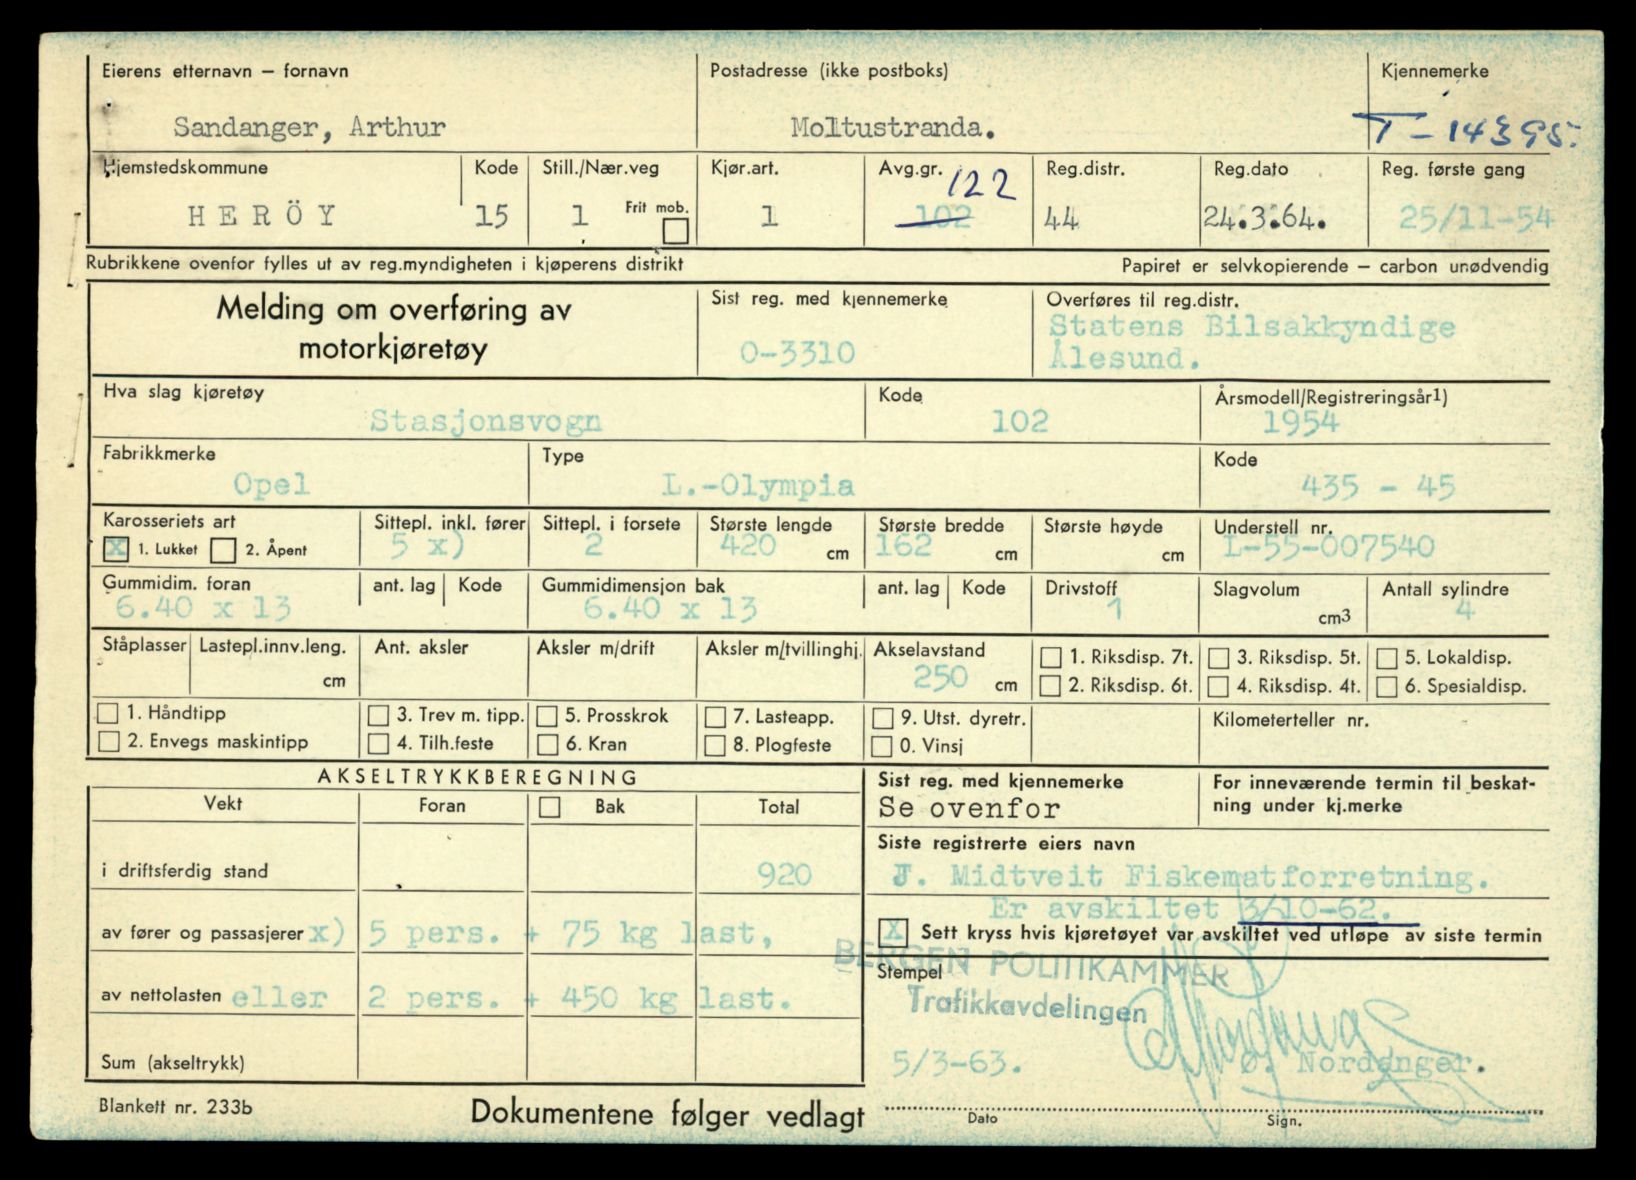 Eierens etternavn – fornavn Postadresse (ikke postboks) Kjennemerke
Sandanger, Arthur Moltustranda. T-14395.
Hjemstedskommune Kode Still./Nær.veg Kjør.art. Avg.gr. 122 Reg.distr. Reg.dato Reg. første gang
HERÖY 15 1 Frit mob. 1 102 44 24.3.64. 25/11-54
Rubrikkene ovenfor fylles ut av reg.myndigheten i kjøperens distrikt Papiret er selvkopierende – carbon unødvendig
Melding om overføring av motorkjøretøy
Sist reg. med kjennemerke Overføres til reg.distr.
O-3310 Statens Bilsakkyndige
Ålesund.
Hva slag kjøretøy Kode Årsmodell/Registreringsår1)
Stasjonsvogn 102 1954
Fabrikkmerke Type Kode
Opel L.-Olympia 435 - 45
Karosseriets art Sittepl. inkl. fører Sittepl. i forsete Største lengde Største bredde Største høyde Understell nr.
X 1. Lukket 2. Åpent 5 x) 2 420 cm 162 cm cm L-55-007540
Gummidim. foran ant. lag Kode Gummidimensjon bak ant. lag Kode Drivstoff Slagvolum Antall sylindre
6.40 x 13 6.40 x 13 1 cm3 4
Ståplasser Lastepl.innv.leng. Ant. aksler Aksler m/drift Aksler m/tvillinghj. Akselavstand 1. Riksdisp. 7t. 3. Riksdisp. 5t. 5. Lokaldisp.
cm 250 cm 2. Riksdisp. 6t. 4. Riksdisp. 4t. 6. Spesialdisp.
1. Håndtipp 3. Trev m. tipp. 5. Prosskrok 7. Lasteapp. 9. Utst. dyretr. Kilometerteller nr.
2. Envegs maskintipp 4. Tilh.feste 6. Kran 8. Plogfeste 0. Vinsj
AKSELTRYKKBEREGNING Sist reg. med kjennemerke For inneværende termin til beskat-
Vekt Foran Bak Total Se ovenfor ning under kj.merke
Siste registrerte eiers navn
i driftsferdig stand 920 J. Midtveit Fiskematforretning.
Er avskiltet 3/10-62.
av fører og passasjerer x) 5 pers. + 75 kg last, X Sett kryss hvis kjøretøyet var avskiltet ved utløpe av siste termin
BERGEN POLITIKAMMER
Stempel
av nettolasten eller 2 pers. + 450 kg last. Trafikkavdelingen
Sum (akseltrykk) 5/3-63. Ø. Nordanger.
Blankett nr. 233b Dokumentene følger vedlagt Dato Sign.